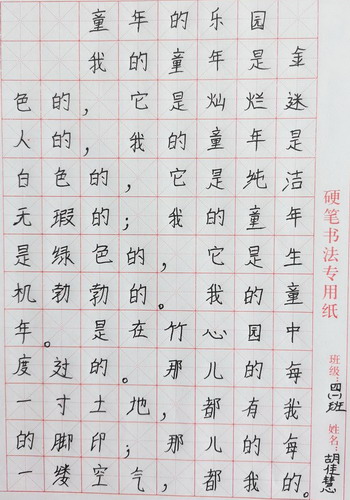 童年的乐园
我的童年是金
色的，它是灿烂迷
人的，我的童年是
白色的，它是纯洁
无瑕的；我的童年
是绿色的，它是生
机勃勃的。我的童
年。是在竹心园中
度过的。那儿的每
一寸土地，都有我
的脚印；那儿的每
一缕空气，都我的。
硬笔书法专用纸
班级：四(一)班
姓名：胡佳慧